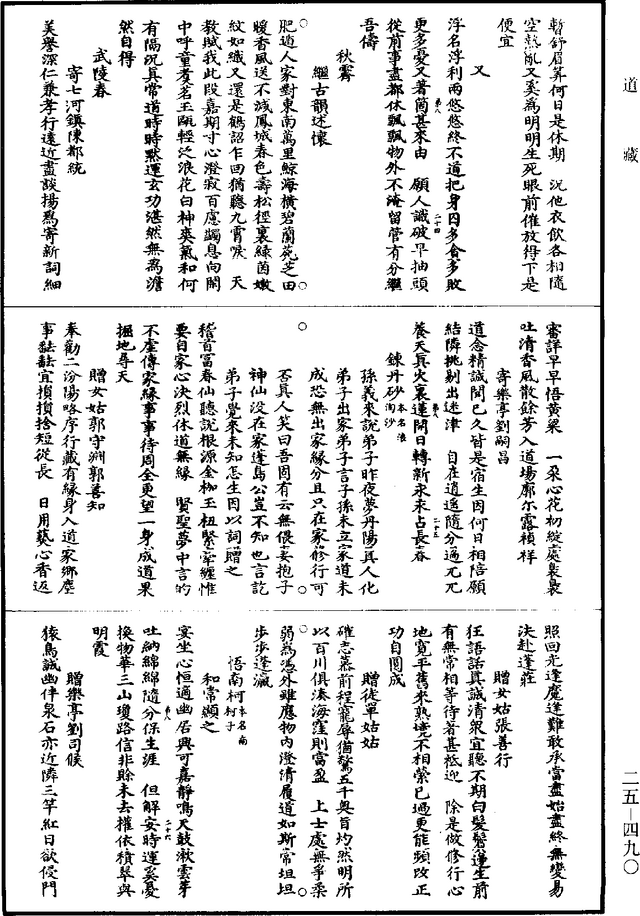 道藏
暫舒眉筭何日是休期　況他衣飲各相隨
空熱亂又奚為明明生死眼前催放得下是
便宜
又
浮名浮利兩悠悠終不道把身囚多貪多敗
更多憂又著箇甚來由　願人識破早抽頭
從前事盡都休飄飄物外不淹留管有分繼
吾儔
秋霽
繼古韻述懷
肥遁人家對東南萬里鯨海橫碧蘭苑芝田
暖香風送不減鳳城春色壽松徑裏綠茵嫩
紋如織又還是鶴詔乍回猶聽九霄唳　天
教賦我此段嘉期寸心澄寂百慮蠲息向閑
中呼童煮茗玉甌輕泛浪花白神爽氣和何
有隔況真常道時時默運玄功湛然無為澹
然自得
武陵春
寄七河鎮陳都統
美譽深仁兼孝行遠近盡談揚為寄新詞細
審詳早早悟黃粱　一朵心花初綻處裊裊
吐清香風散餘芳入道場廓尔露禎祥
寄樂亭劉嗣昌
道念精誠聞已久皆是宿生因何日相陪願
結隣挑剔出迷津　自在逍遙隨分過兀兀
養天真火裏蓮開日轉新永永占長春
鍊丹砂本名浪淘沙
孫義來說弟子昨夜夢丹陽真人化
弟子出家弟子言子孫未立家道未
成恐無出家緣分且只在家修行可
否真人笑曰吾固有云無偎妻抱子
神仙沒在家蓬島公豈不知也言訖
弟子覺來未知怎生因以詞贈之
稽首富春仙聽說根源金枷玉杻緊牽纏惟
要自家心決烈休道無緣　賢聖夢中言的
不虛傳家緣事事待周全更望一身成道果
掘地尋天
贈女姑郭守溯郭善知
奉勸二汾陽略序行藏有緣身入道家鄉塵
事㪍㪍宜損損捨短從長　日用爇心香返
照回光逢魔逢難敢承當盡始盡終無變易
決赴蓬莊
贈女姑張善行
狂語話真誠清眾宜聽不期白髮鬢邊生前
有無常相等待著甚秪迎　除是做修行心
地寬平舊來熟境不相縈已過更能頻改正
功自圓成
贈從單姑姑
確志慕前程寵辱猶驚五千奥旨灼然明所
以百川俱湊海窪則當盈　上士處無爭柔
弱為憑外雖應物內澄清履道如斯常坦坦
步步蓬瀛
悟南柯本名南柯子
和常顯之
宴坐心恒適幽居興可嘉靜鳴天鼓漱雲芽
吐納綿綿隨分保生涯　但解安時運奚憂
換物華三山瓊路信非賒未去權依積翠與
明霞
贈樂亭劉司候
猿鳥誠幽伴泉石亦近隣三竿紅日欲侵門
二五—四九〇